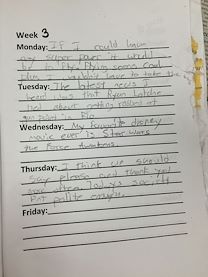 Week 3
Monday: If I could have
any super power it would
be to fly
plus I wouldn't have to take the
Tuesday: The latest news I
heard was that Ryan Lochte
lied about getting robbed at
gun point in Rio
Wednesday: My favorite disney
movie ever is Star Wars
the Force Awakens.
Thursday: I think we should
say please and thank you
more often
not polite enough.
Friday: